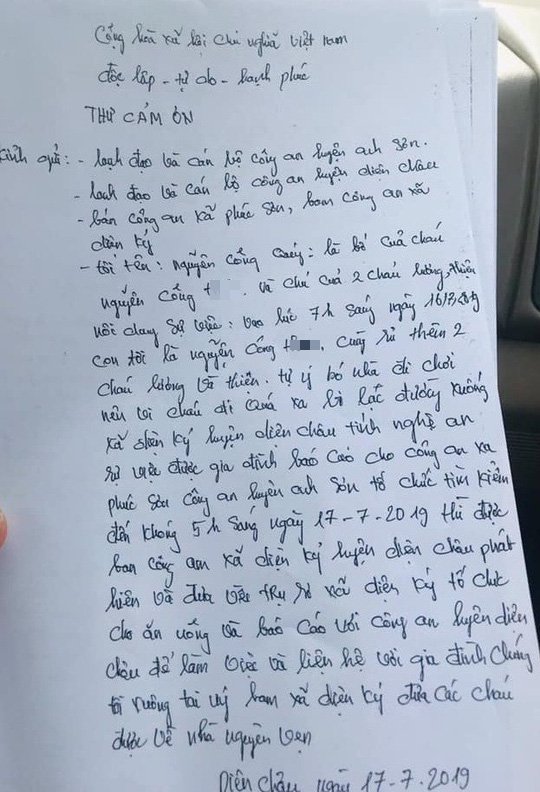 Cộng hòa xã hội chủ nghĩa việt nam
độc lập - tự do - hạnh phúc
THƯ CẢM ƠN
kính gửi: - lãnh đạo và cán bộ công an huyện anh sơn.
- lãnh đạo và cán bộ công an huyện diễn châu
- bán công an xã phúc sơn, ban công an xã
diễn kỷ
- tôi tên: nguyễn công quý: là bố của cháu
nguyễn công t . và chú của 2 cháu lương, thiện
nôi dung sự việc: vào lúc 7h sáng ngày 16/7/2019
con tôi là nguyễn công th . cùng rủ thêm 2
cháu lương và thiện. tự ý bỏ nhà đi chơi
nên vì cháu đi quá xa bị lạc đường xuống
xã diễn kỷ huyện diễn châu tỉnh nghệ an
sự việc được gia đình báo cáo cho công an xa
phúc sơn công an huyện anh sơn tổ chức tìm kiếm
đến khoảng 5h sáng ngày 17-7-2019 thì được
ban công an xã diễn kỷ huyện diễn châu phát
hiện và đưa về trụ sở xã diễn kỷ tổ chức
cho ăn uống và báo cáo với công an huyện diễn
châu để làm việc và liên hệ với gia đình chúng
tôi xuống tại ban xã diễn kỷ đưa các cháu
được về nhà nguyên vẹn
Diễn Châu ngày 17-7-2019